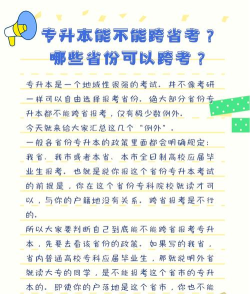 专升本能不能跨省考？
哪些省份可以跨考？
专升本是一个地域性很强的考试，并不像考研
一样可以自由选择报考省份，绝大部分省份专
升本都不能跨省报考，仅有极少数例外。
今天就来给大家汇总这几个“例外”。
一般各省份专升本的政策里面都会明确规定：
我省、我市或者本省、本市全日制高校应届毕
业生报考。也就是说你报这个省份专升本考试
的前提是，你在这个省份专科院校就读才可
以，与你的户籍地没有关系。跨省报考是不行
的。
所以大家要判断自己到底能不能跨省报考专升
本，先要去看该省份的政策，如果写的我省，
省内普通高校专科应届毕业生，那就说明外省
就读大专的同学，是不能报考这个省市的专升
本的。即使你的户籍地是这个省市，你也不能